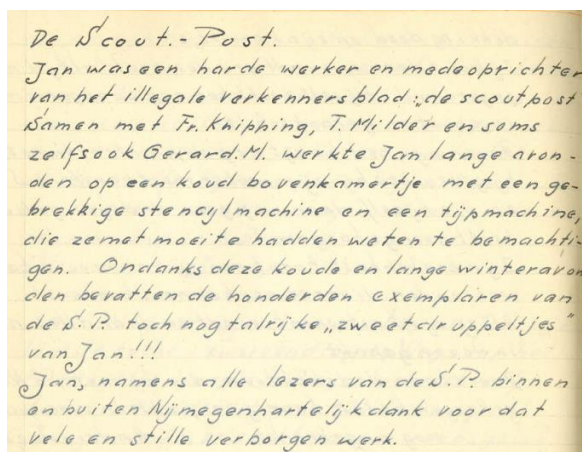 De Scout.-Post.
Jan was een harde werker en medeoprichter
van het illegale verkennersblad: „de scoutpost
Samen met Fr. Knipping, T. Milder en soms
zelfs ook Gerard. M. werkte Jan lange avon-
den op een koud bovenkamertje met een ge-
brekkige stencylmachine en een tijpmachine,
die ze met moeite hadden weten te bemachti-
gen. Ondanks deze koude en lange winteravon
den bevatten de honderden exemplaren van
de S.P. toch nog talrijke „zweetdruppeltjes"
van Jan!!!
Jan, namens alle lezers van de S.P. binnen
en buiten Nijmegen hartelijk dank voor dat
vele en stille verborgen werk.